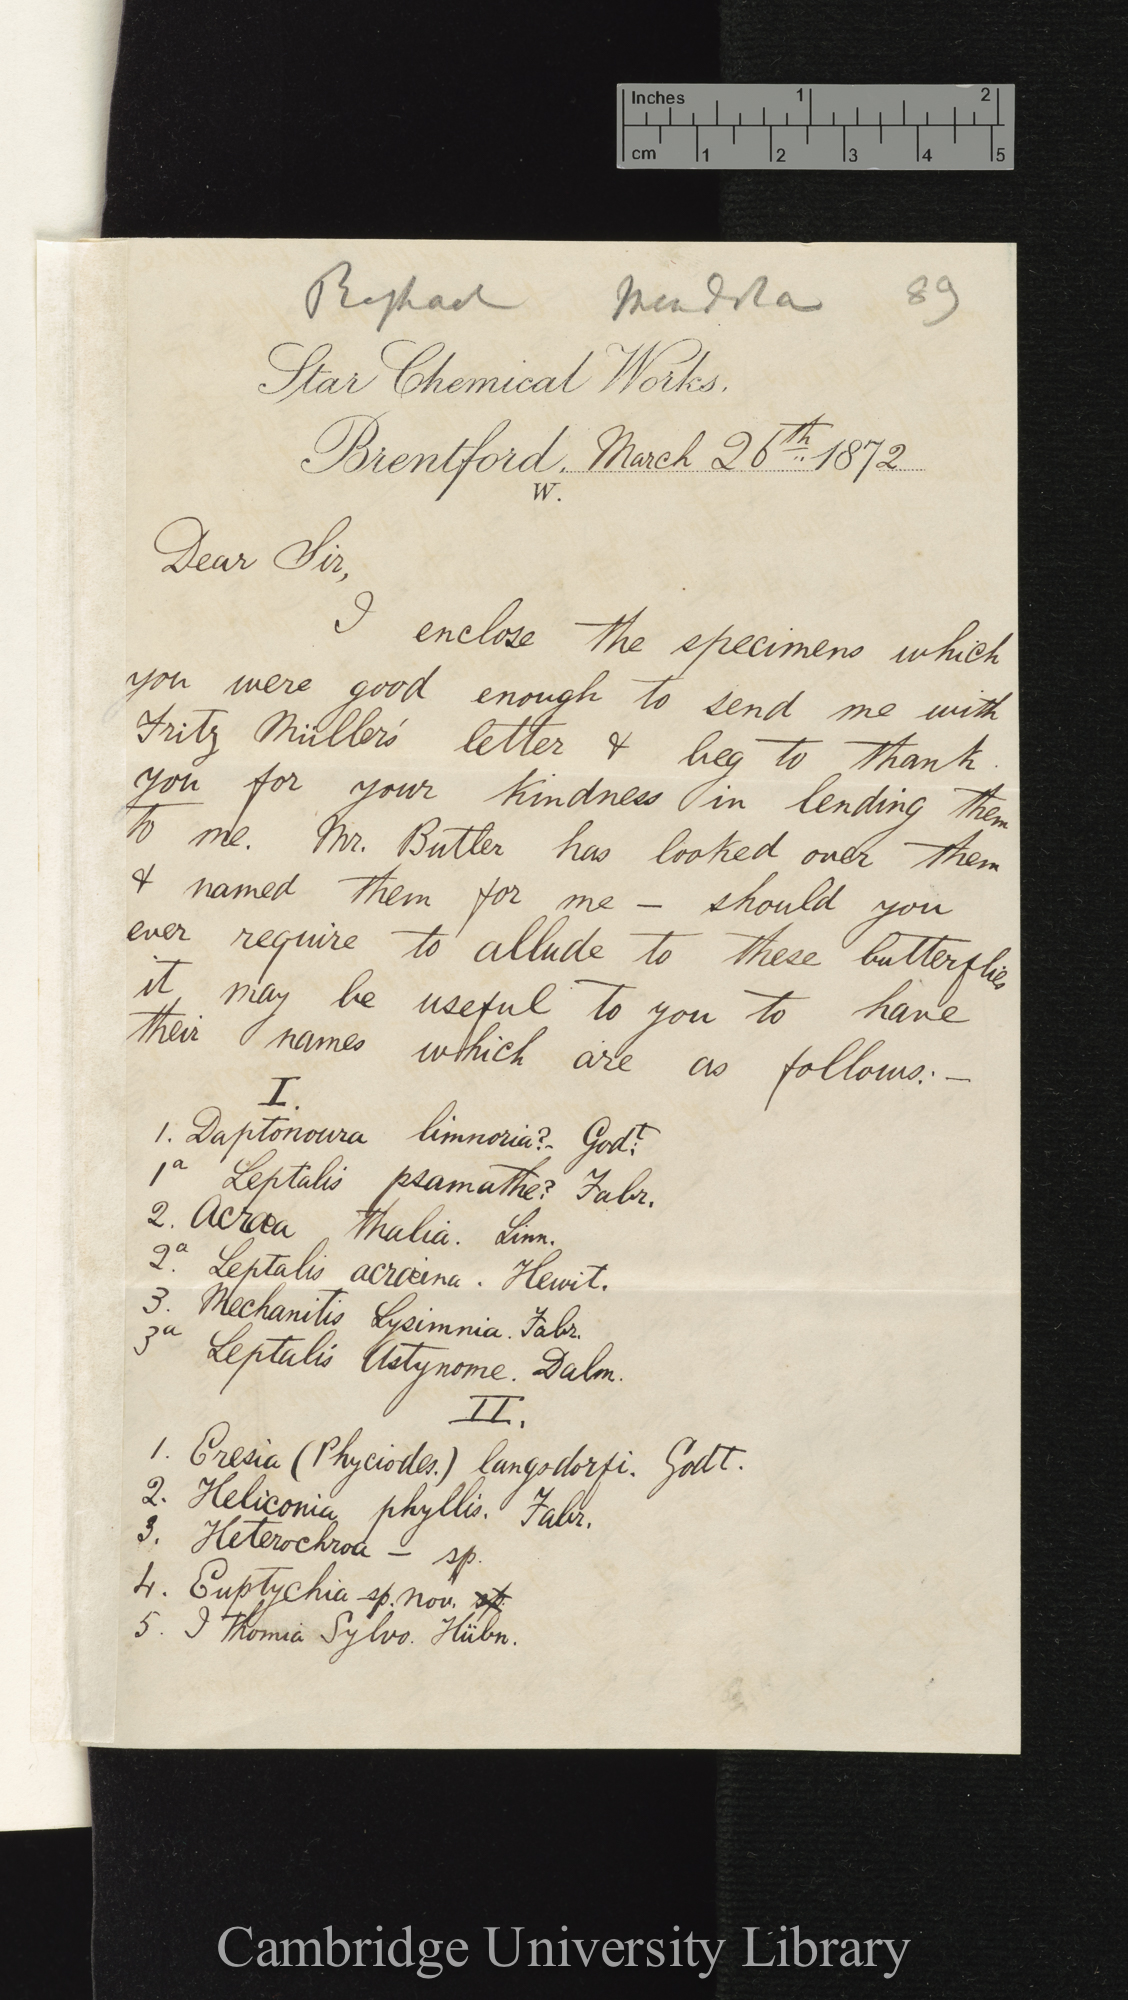 Inches 1 2
cm 1 2 3 4 5
Raphael Meldola 89
Star Chemical Works.
Brentford. March 26th 1872
W.
Dear Sir,
I enclose the specimens which
you were good enough to send me with
Fritz Müller's letter & beg to thank
you for your kindness in lending them
to me. Mr. Butler has looked over them
& named them for me — should you
ever require to allude to these butterflies
it may be useful to you to have
their names which are as follows: —
I.
1. Daptonoura limnoria? - Godt.
1a Leptalis psamathe? Fabr.
2. Acræa thalia. Linn.
2a. Leptalis acræina. Hewit.
3. Mechanitis Lysimnia. Fabr.
3a Leptalis Astynome. Dalm.
II.
1. Eresia (Phyciodes.) langsdorfi. Godt.
2. Heliconia phyllis. Fabr.
3. Heterochroa — sp.
4. Euptychia sp. nov. sp.
5. Ithomia Sylvo. Hübn.
Cambridge University Library